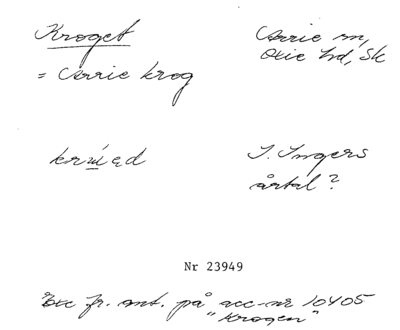 Kroget
Arrie sn,
= Arrie krog
Oxie hd, Sk
I. Ingers
årtal?
Nr 23949
Exc fr. ant. på acc-nr 10405
"Krogen"